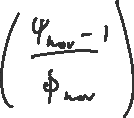 \left( \frac{\psi_{nov} - 1}{\phi_{nov}} \right)